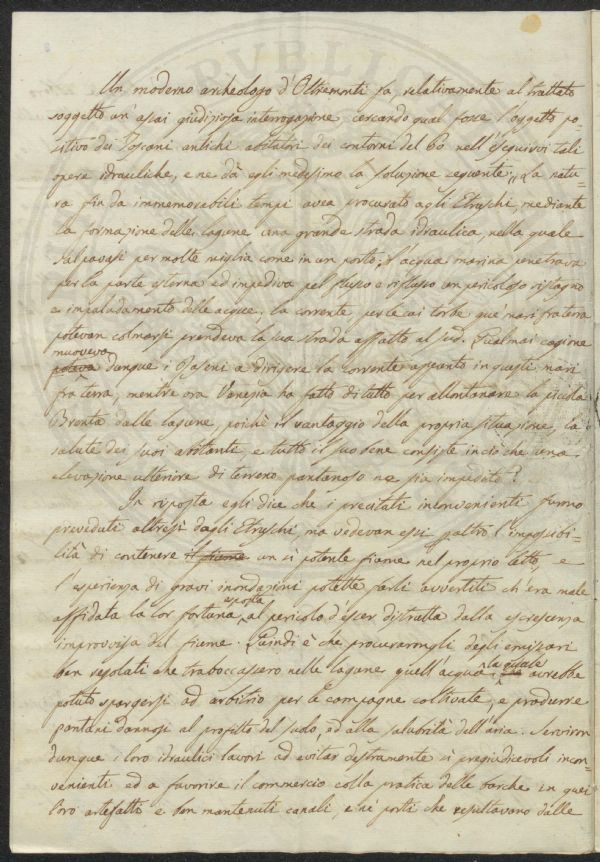 Un moderno archeologo d'Oltremonti fa, relativamente al trattato
soggetto un' assai giudiziosa interrogazione, cercando qual fosse l'oggetto po-
sitivo dei Toscani antichi abitatori dei contorni del Po nell'eseguirvi tali
opere idrauliche, e ne dà egli medesimo la soluzione seguente: "La natu-
ra fin da immemorabili tempi avea procurato agli Etruschi, mediante
la formazione delle lagune una grande strada idraulica, nella quale
salpavasi per molte miglia come in un porto; l'acqua marina penetrava
per la parte esterna ed impediva pel flusso e riflusso un pericoloso ristagno
e impaludamento delle acque; la corrente, per le cui torbe que' mari fra terra
potevan colmarsi prendeva la sua strada affatto al sud. Qual mai cagione
moveva
poteva dunque i Raseni a dirigere la corrente appunto in questi mari
fra terra, mentre ora Venezia ha fatto di tutto per allontanare la piccola
Brenta dalle lagune, poichè il vantaggio della propria situazione, la
salute dei suoi abitanti, e tutto il suo bene consiste in ciò che una
elevazione ulteriore di terreno pantanoso ne sia impedita?
In risposta egli dice che i precitati inconvenienti furono
preveduti altresì dagli Etruschi, ma vedevan essi d'altro l'impossibi-
lità di contenere il fiume un sì potente fiume nel proprio letto, e
l'esperienza di gravi inondazioni potette farli avvertiti ch'era male
affidata la lor fortuna esposta al pericolo d'esser distrutta dalla escrescenza
improvvisa del fiume. Quindi è che procurarongli degli emissari
ben regolati che traboccassero nelle lagune quell'acqua la quale avrebbe
potuto spargersi ad arbitrio per le campagne coltivate, e produrre
pantani dannosi al profitto del suolo, ed alla salubrità dell'aria. Serviron
dunque i loro idraulici lavori ad evitar destramente sì pregiudicevoli incon-
venienti ed a favorire il commercio colla pratica delle barche in quei
loro artefatti e ben mantenuti canali, e ne' porti che resultavano dalle